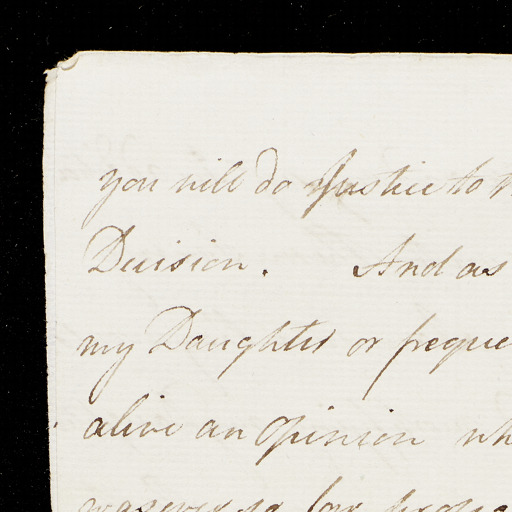 you will do Justice to
Division. And as
my Daughter or freque
alive an Opinion wh